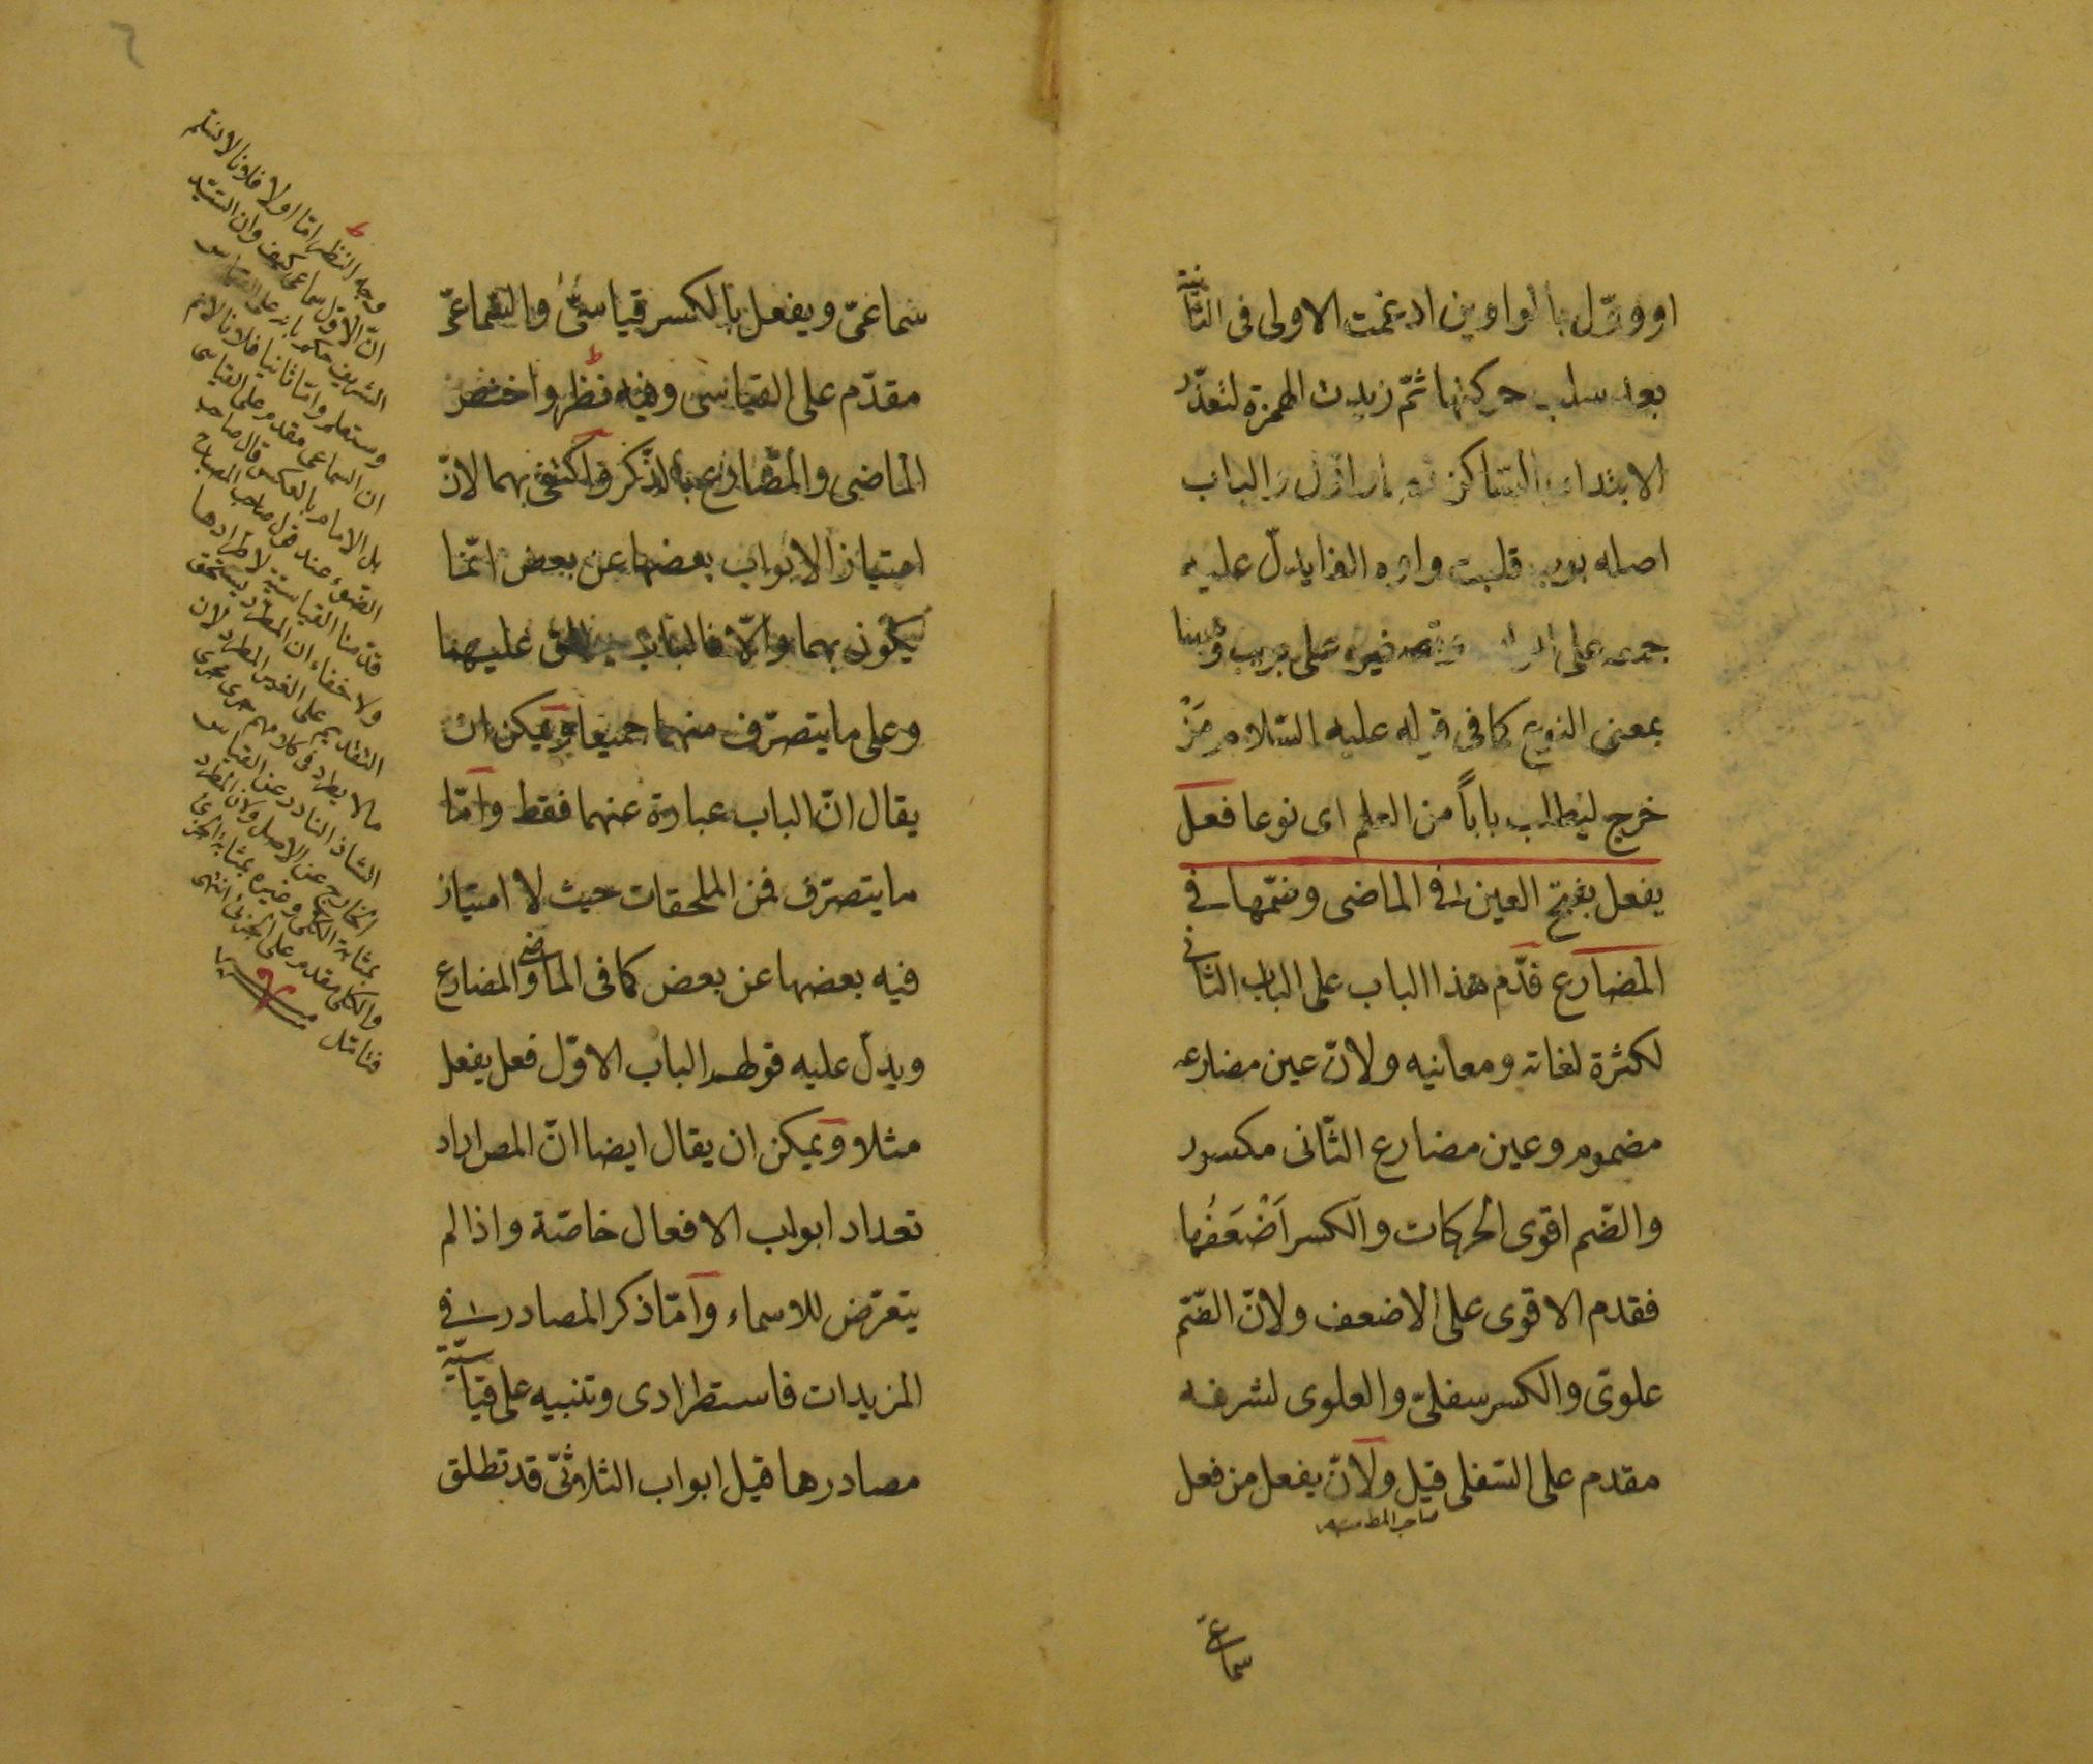 او ووّل بالواوين ادغمت الاولى فى الثانية
بعد سلب حركتها ثمّ زيدت الهمزة لتعذّر
الابتداء بالساكن الباب
اصله بوب قلبت واوه الفا يدلّ عليه
جمعه على وتصغيره على بويب وهنا
بمعنى النوع كما فى قوله عليه السّلام مَنْ
خرج ليطلب باباً من العلم اى نوعا فعل
يفعل بفتح العين فى الماضى وضمّها فى
المضارع قدّم هذا الباب على الباب الثانى
لكثرة لغاته ومعانيه ولانّ عين مضارعه
مضموم وعين مضارع الثّانى مكسور
والضّم اقوى الحركات والكسر اَضْعَفُها
فقدم الاقوى على الاضعف ولانّ الضّم
علوىّ والكسر سفلىّ والعلوى لشرفه
مقدم على السّفلى قيل ولانّ يفعل من فعل
سماعىّ
سماعىّ ويفعل بالكسر قياسىّ والسّماعىّ
مقدّم على القياسى وفيه نظر واختصّ
الماضى والمضارع بالذّكر واكتفى بهما لانّ
امتياز الابواب بعضها عن بعض انّما
يكون بهما والّا فالباب يطلق عليهما
وعلى ما يتصرّف منهما جميعا ويمكن ان
يقال انّ الباب عبارة عنهما فقط وامّا
ما يتصرّف فمن الملحقات حيث لا امتياز
فيه بعضها عن بعض كما فى الماضى والمضارع
ويدلّ عليه قولهم الباب الاوّل فعل يفعل
مثلا ويمكن ان يقال ايضا انّ المص اراد
تعداد ابواب الافعال خاصّة واذا لم
يتعرّض للاسماء وامّا ذكر المصادر فى
المزيدات فاستطرادى وتنبيه على قياسيّة
مصادرها قيل ابواب الثلاثىّ قد تطلق
وجه النظر امّا اولا فلانا لا نسلم
انّ الاوّل سماعى كيف وان السيّد
الشريف حكم بانه على القياس
وستعلم وامّا ثانيا فلانا لانم
ان السماعى مقدم على القياسى
بل الامام بالعكس قال صاحب
الضوء عند قول صاحب المصباح
قدّمنا القياسيّة لاطرادها
ولا خفاء ان المطّرد يستحق
التقديم على الغير المطرد لان
ما لا يطرد فى كلامهم جرى مجرى
الشاذ النادر عن القياس
الخارج عن الاصل ولان المطرد
بمثابة الكلى وغيره بمثابة الجزئى
والكلى مقدم على الجزئى انتهى
فتأمّل